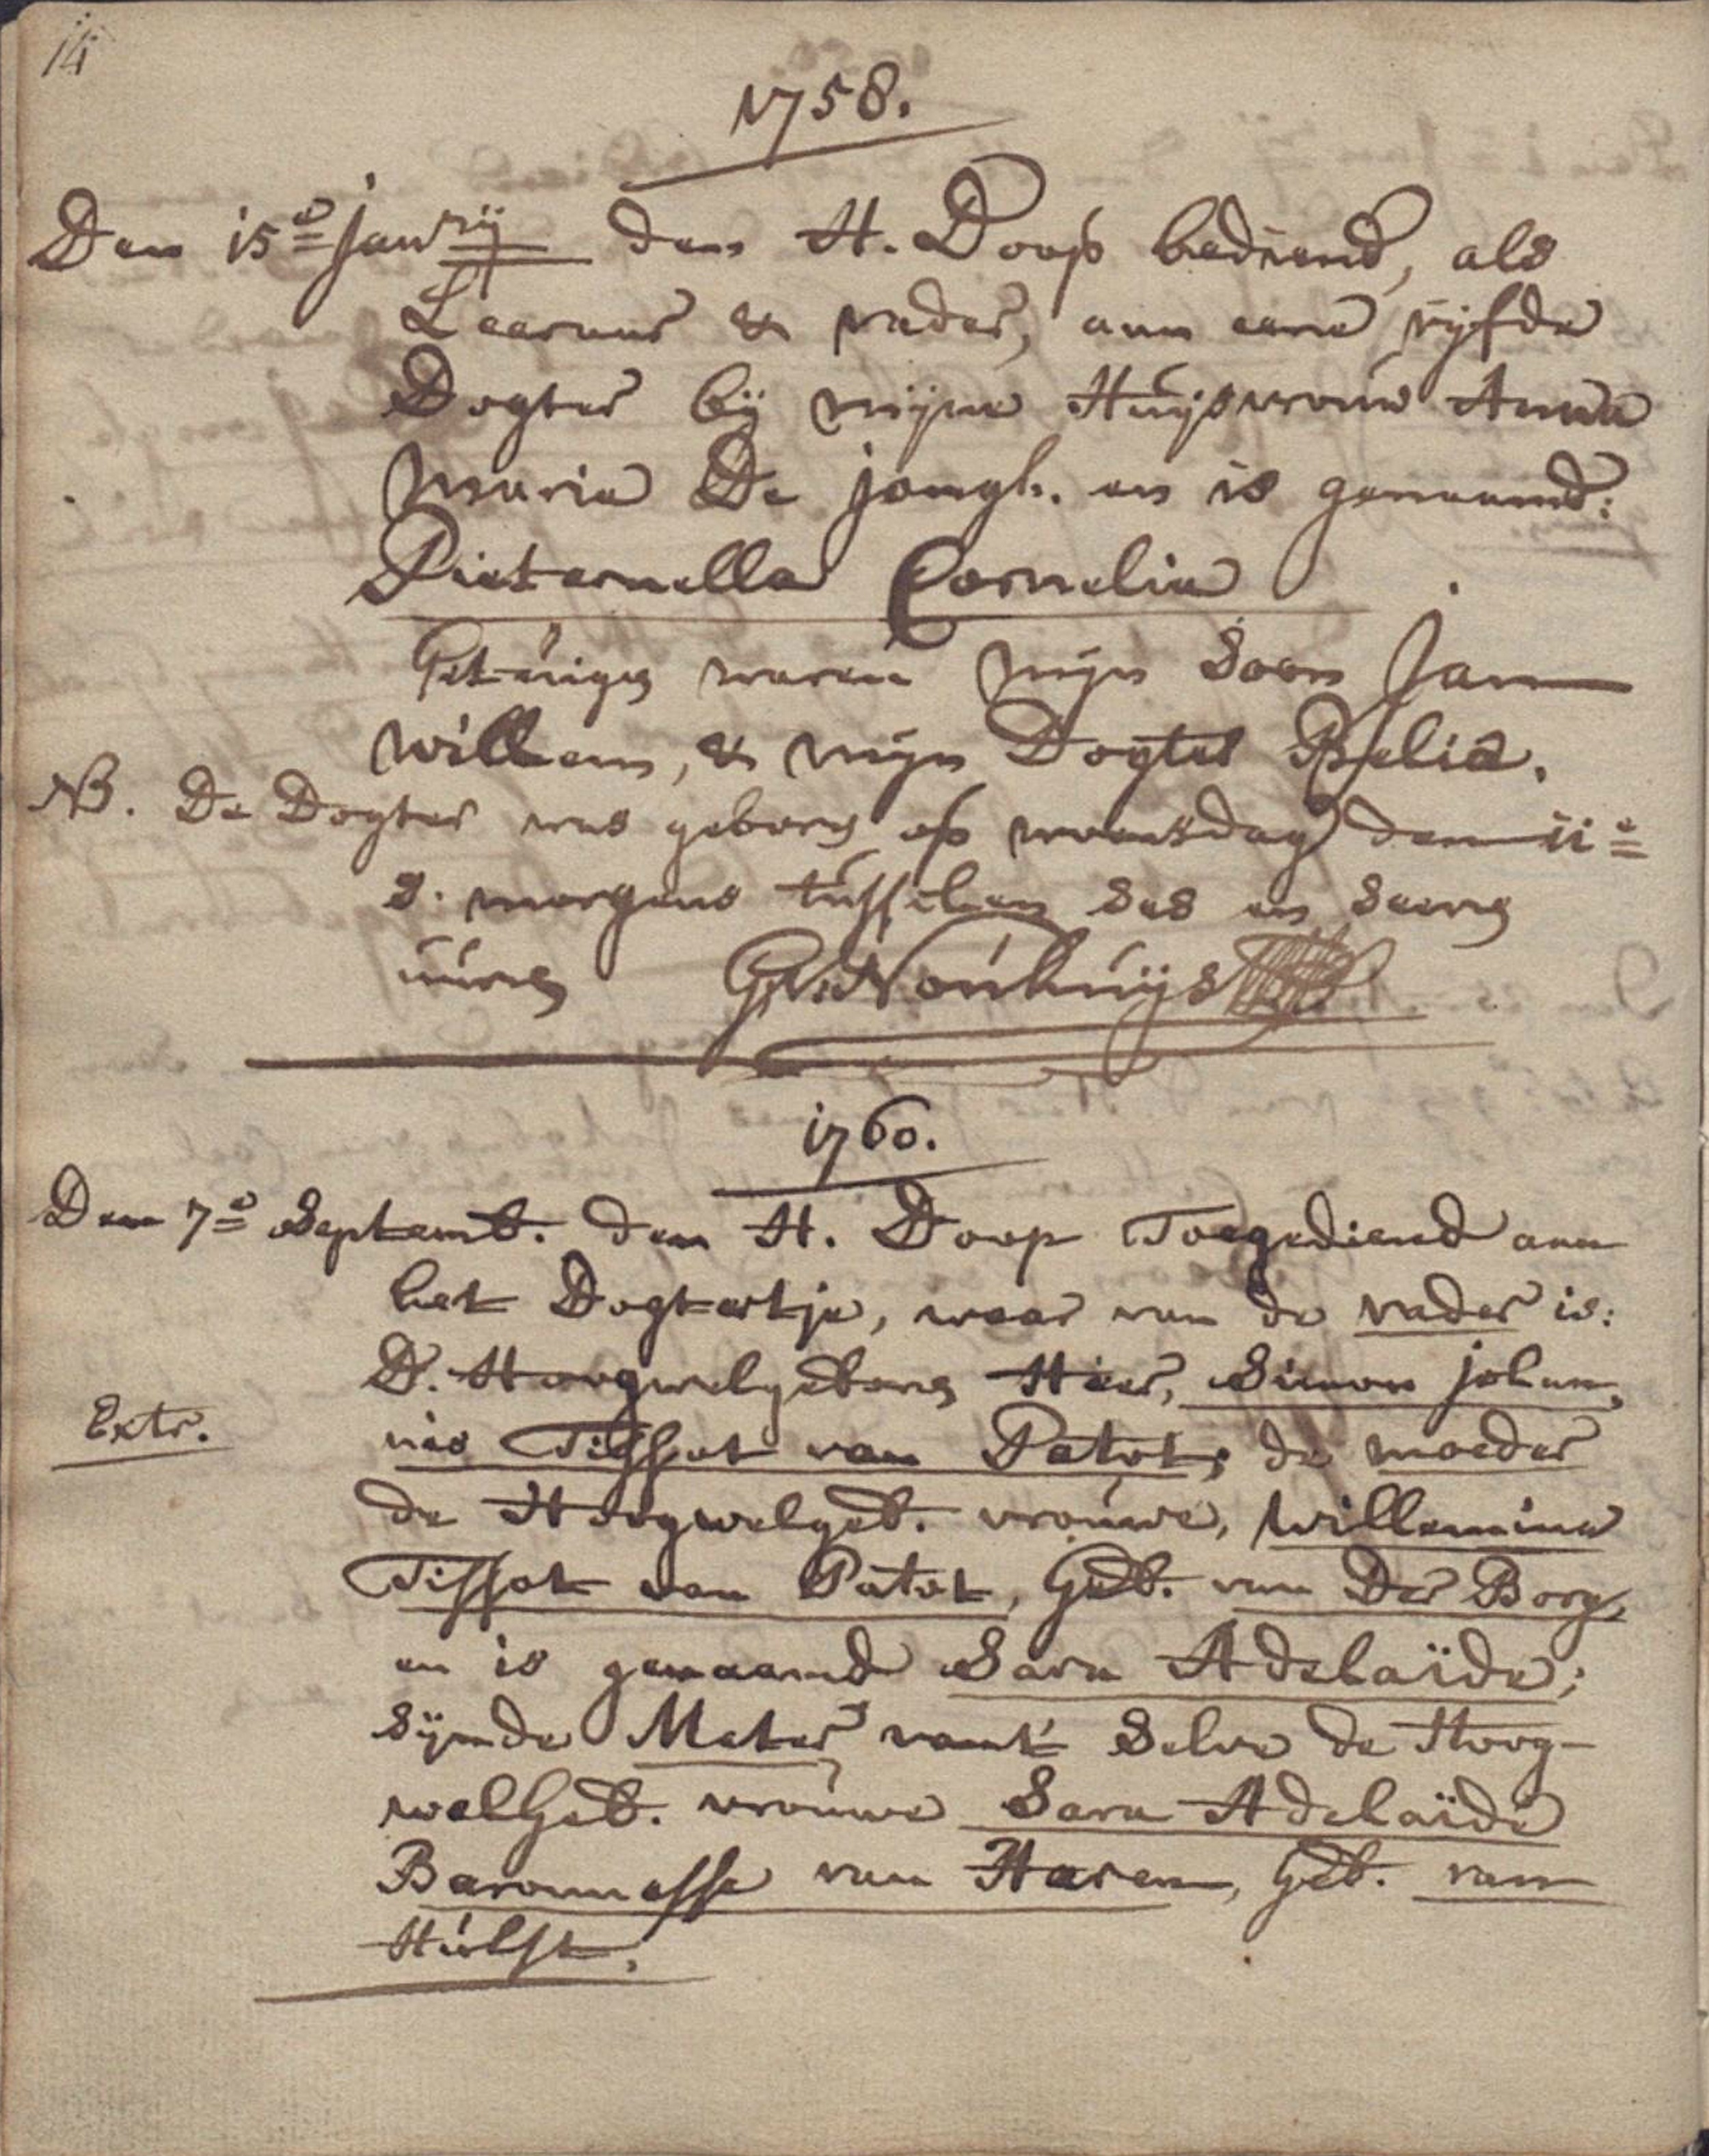 14
1758.
Den 15e Janrij den H. Doop bediend, als
Leeraar & vader, aan eene vijfde
Dogter bij mijne Huijsvrouw Anna
Maria De Jongh. en is genaamd:
Pieternella Cornelia
Getuigen waren mijn Soon Jan
Willem, & mijn Dogter Belia.
NB. De Dogter was geboren op woensdag den 11e
S. morgens tusschen Ses en Seeven
uuren
1760.
Den 7e Septemb. den H. Doop Toegediend aan
het Dogtertje, waar van de vader is:
D. Hoogwelgeboren Heer, Simon Johan-
nes Tissot van Patot; de moeder
Extr.
de Hoogwelgeb. vrouwe, Willemina
Tissot van Patot, Geb. van Der Borg,
en is genaamd Sara Adelaïde;
Sijnde Meter van't Selve de Hoog-
welGeb. vrouwe Sara Adelaïde
Baronnesse van Haren, Geb. van
Hulst.